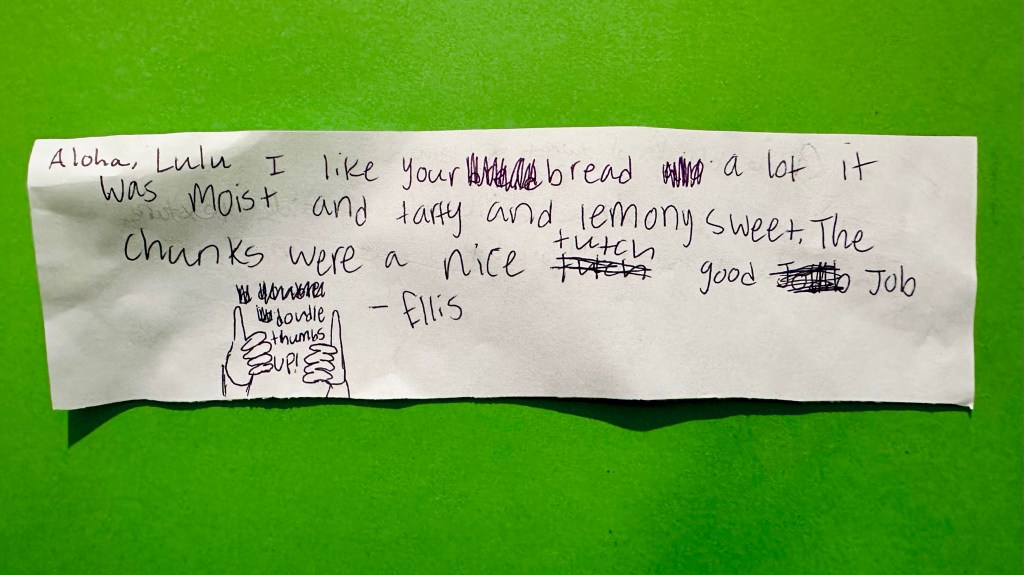 Aloha, Lulu I like your bread a lot it
was moist and tarty and lemony sweet. The
chunks were a nice tutch good Job
- Ellis
doudle
thumbs
UP!